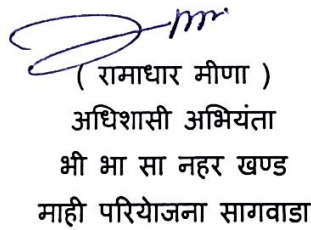 ( रामाधार मीणा )
अधिशासी अभियंता
भी भा सा नहर खण्ड
माही परियेाजना सागवाडा